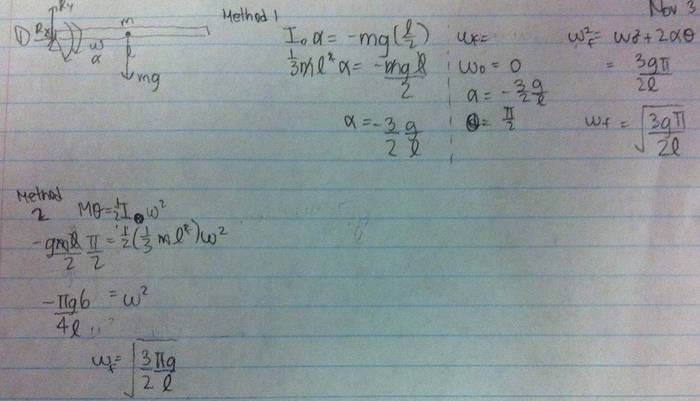 Nov 3
①
Ry
Rx
m
ω
α
mg
Method 1
I₀α = -mg(ℓ/2)
1/3 mℓ² α = -mgℓ/2
α = -3/2 g/ℓ
ωf =
ω₀ = 0
α = -3/2 g/ℓ
θ = π/2
ωf² = ω₀² + 2αθ
= 3gπ/2ℓ
ωf = √(3gπ/2ℓ)
Method
2
Mθ = 1/2 I₀ω²
-gmℓ/2 π/2 = 1/2 (1/3 mℓ²)ω²
-πg6/4ℓ = ω²
ωf = √(3/2 πg/ℓ)